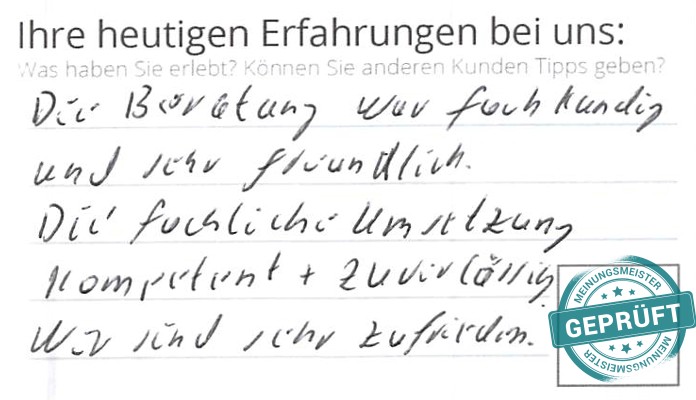 Ihre heutigen Erfahrungen bei uns:
Was haben Sie erlebt? Können Sie anderen Kunden Tipps geben?
Die Beratung war fachkundig
und sehr freundlich.
Die fachliche Umsetzung
kompetent + zuverlässig
Wir sind sehr zufrieden.
MEINUNGSMEISTER
GEPRÜFT
MEINUNGSMEISTER